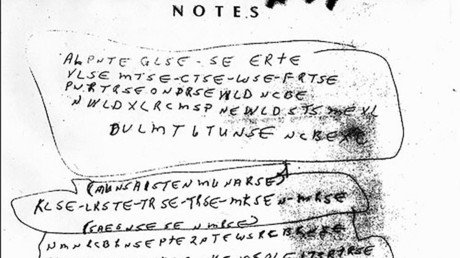 NOTES
ALPNTE GLSE-SE ERTE
VLSE MTSE-CTSE-WSE-FRTSE
PNRTRSEONDRSEWLD NCBE
NWLDXLRCMSP NEWLDSTSMEXL
DULMT6TUNSE NCBEXC
(MUNSAISTENMUNARSE)
KLSE-LRSTE-TRSE-TRSE-MKSEN-MRSE
(SAEGNSESE NMBSE)
NMNRCBRNSEPTE2PTEWSRCBRNSE